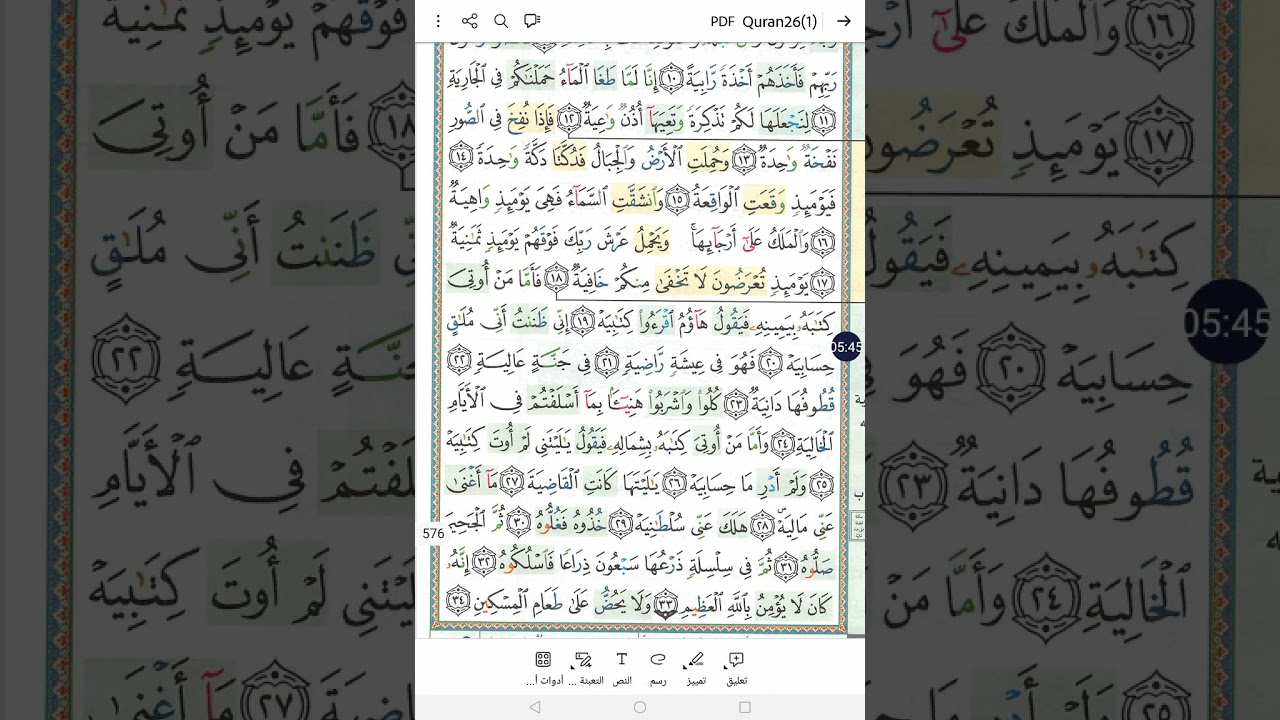 PDF Quran26(1)
رَبِّهِمْ فَأَخَذَهُمْ أَخْذَةً رَّابِيَةً ١٠ إِنَّا لَمَّا طَغَا ٱلْمَآءُ حَمَلْنَٰكُمْ فِى ٱلْجَارِيَةِ
١١ لِنَجْعَلَهَا لَكُمْ تَذْكِرَةً وَتَعِيَهَآ أُذُنٌ وَٰعِيَةٌ ١٢ فَإِذَا نُفِخَ فِى ٱلصُّورِ
نَفْخَةٌ وَٰحِدَةٌ ١٣ وَحُمِلَتِ ٱلْأَرْضُ وَٱلْجِبَالُ فَدُكَّتَا دَكَّةً وَٰحِدَةً ١٤
فَيَوْمَئِذٍ وَقَعَتِ ٱلْوَاقِعَةُ ١٥ وَٱنشَقَّتِ ٱلسَّمَآءُ فَهِىَ يَوْمَئِذٍ وَاهِيَةٌ
١٦ وَٱلْمَلَكُ عَلَىٰٓ أَرْجَآئِهَا ۚ وَيَحْمِلُ عَرْشَ رَبِّكَ فَوْقَهُمْ يَوْمَئِذٍ ثَمَٰنِيَةٌ
١٧ يَوْمَئِذٍ تُعْرَضُونَ لَا تَخْفَىٰ مِنكُمْ خَافِيَةٌ ١٨ فَأَمَّا مَنْ أُوتِىَ
كِتَٰبَهُۥ بِيَمِينِهِۦ فَيَقُولُ هَآؤُمُ ٱقْرَءُوا۟ كِتَٰبِيَهْ ١٩ إِنِّى ظَنَنتُ أَنِّى مُلَٰقٍ
05:45
حِسَابِيَهْ ٢٠ فَهُوَ فِى عِيشَةٍ رَّاضِيَةٍ ٢١ فِى جَنَّةٍ عَالِيَةٍ ٢٢
قُطُوفُهَا دَانِيَةٌ ٢٣ كُلُوا۟ وَٱشْرَبُوا۟ هَنِيٓـًٔۢا بِمَآ أَسْلَفْتُمْ فِى ٱلْأَيَّامِ
ٱلْخَالِيَةِ ٢٤ وَأَمَّا مَنْ أُوتِىَ كِتَٰبَهُۥ بِشِمَالِهِۦ فَيَقُولُ يَٰلَيْتَنِى لَمْ أُوتَ كِتَٰبِيَهْ
٢٥ وَلَمْ أَدْرِ مَا حِسَابِيَهْ ٢٦ يَٰلَيْتَهَا كَانَتِ ٱلْقَاضِيَةَ ٢٧ مَآ أَغْنَىٰ
عَنِّى مَالِيَهْ ۜ ٢٨ هَلَكَ عَنِّى سُلْطَٰنِيَهْ ٢٩ خُذُوهُ فَغُلُّوهُ ٣٠ ثُمَّ ٱلْجَحِيمَ
576
صَلُّوهُ ٣١ ثُمَّ فِى سِلْسِلَةٍ ذَرْعُهَا سَبْعُونَ ذِرَاعًا فَٱسْلُكُوهُ ٣٢ إِنَّهُۥ
كَانَ لَا يُؤْمِنُ بِٱللَّهِ ٱلْعَظِيمِ ٣٣ وَلَا يَحُضُّ عَلَىٰ طَعَامِ ٱلْمِسْكِينِ ٣٤
تعليق تمييز رسم النص التعبئة ... أدوات أ...